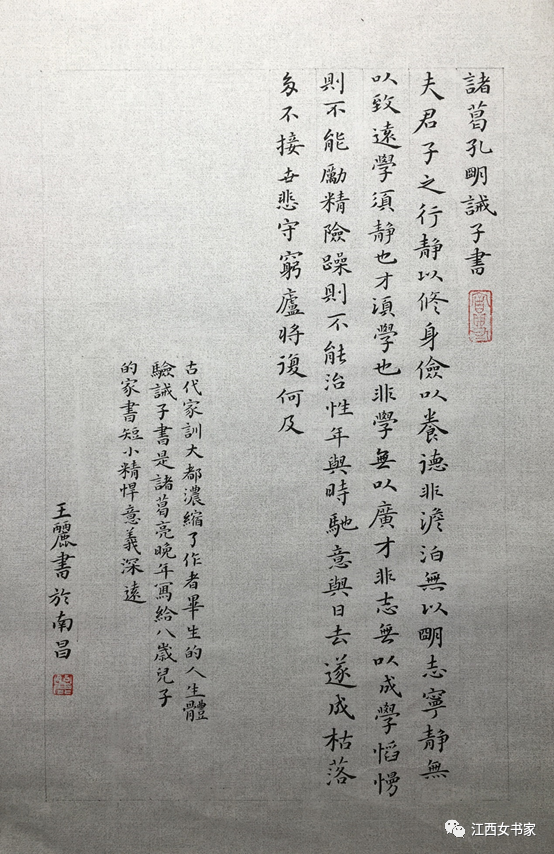 諸葛孔明誡子書
夫君子之行靜以修身儉以養德非澹泊無以明志寧靜無
以致遠學須靜也才須學也非學無以廣才非志無以成學慆慢
則不能勵精險躁則不能治性年與時馳意與日去遂成枯落
多不接世悲守窮廬將復何及
古代家訓大都濃縮了作者畢生的人生體
驗誡子書是諸葛亮晚年寫給八歲兒子
的家書短小精悍意義深遠
王麗書於南昌
江西女书家